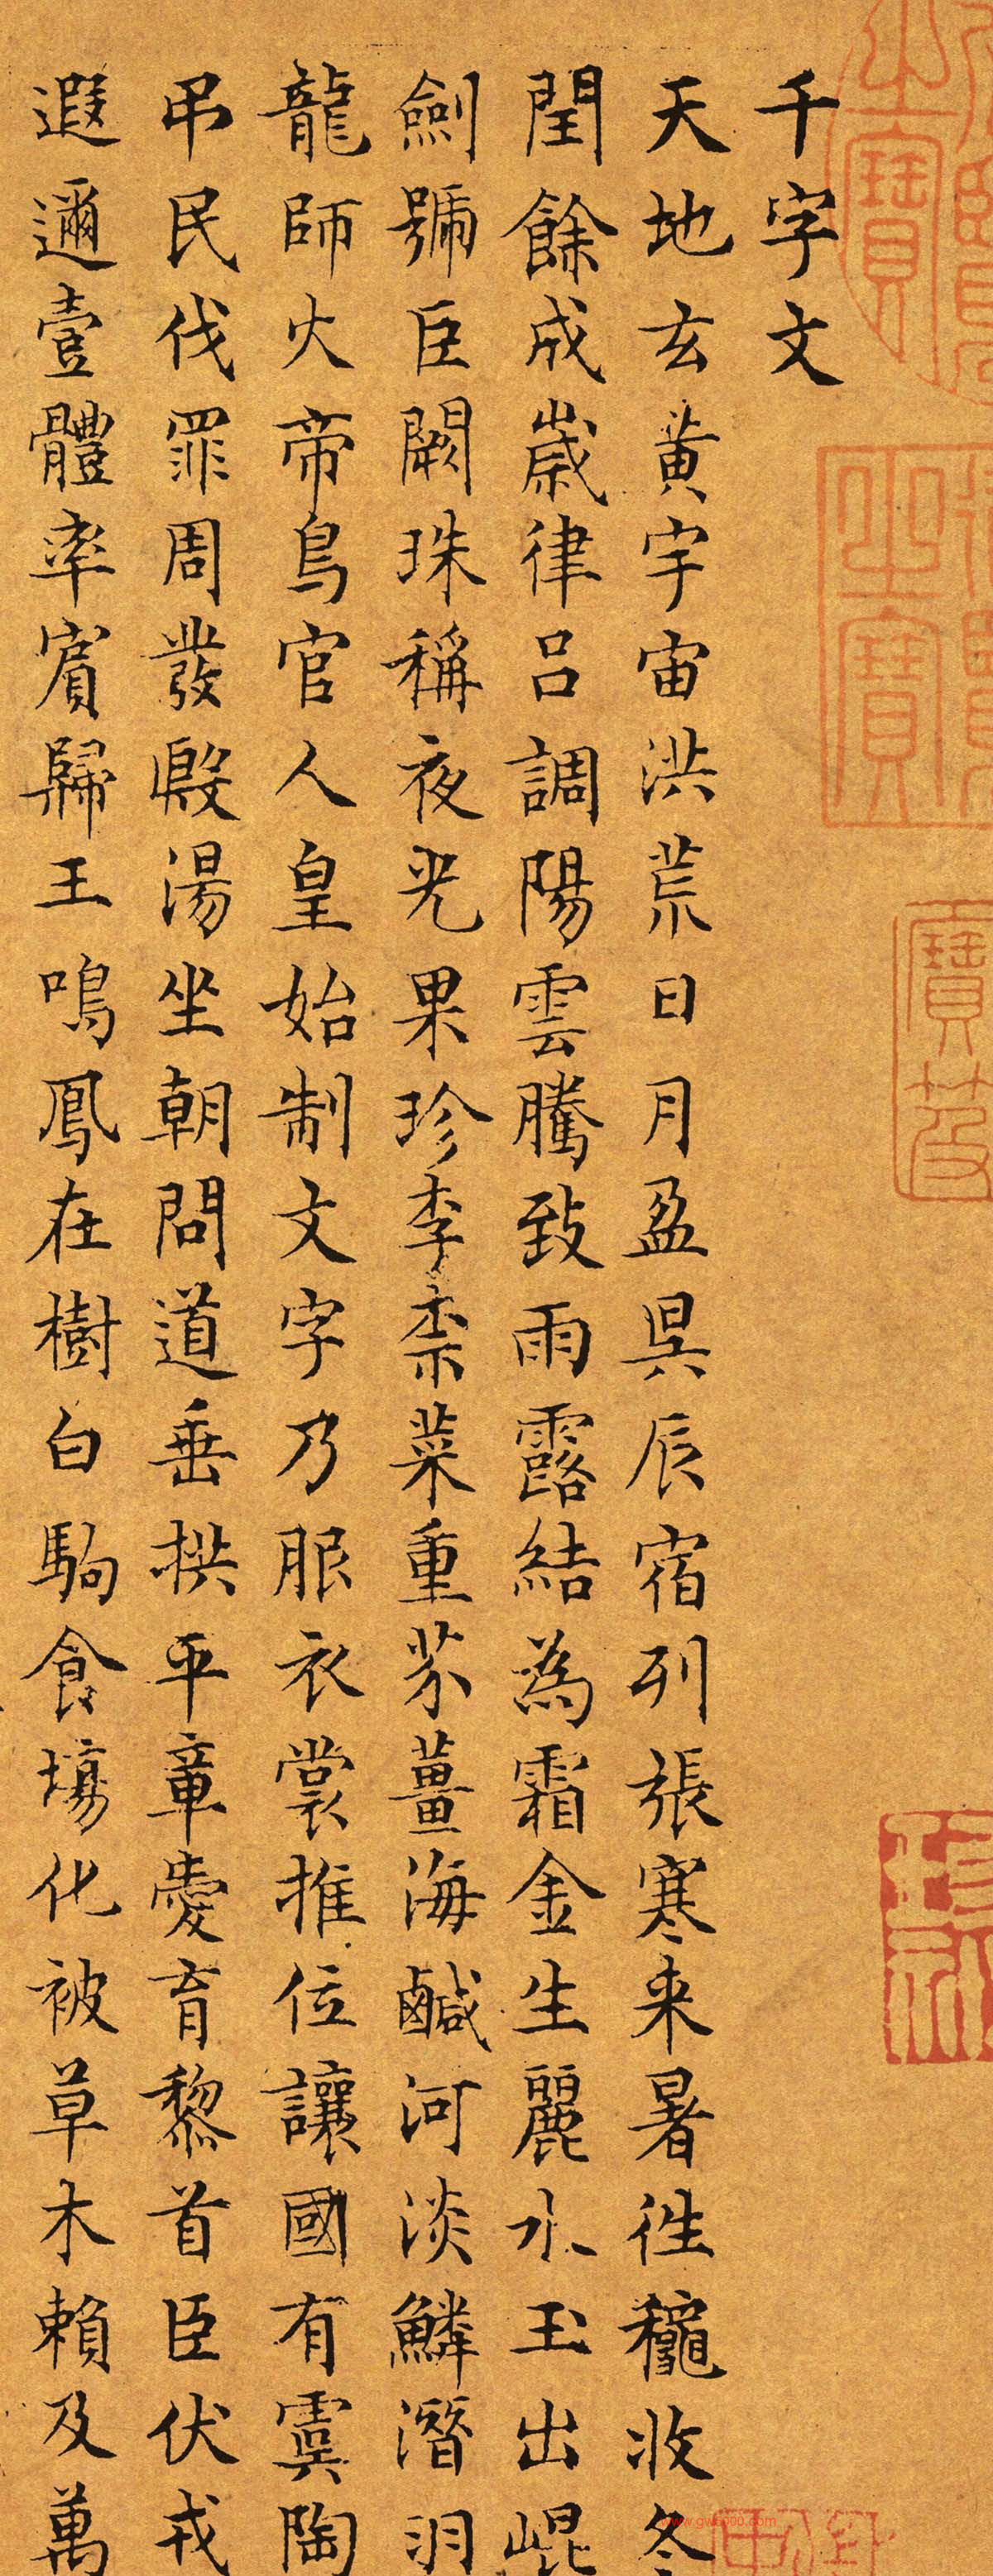 千字文
天地玄黄宇宙洪荒日月盈昃辰宿列張寒来暑往龝收冬
閏餘成歲律吕調陽雲騰致雨露結為霜金生麗水玉出崐
劍號巨闕珠稱夜光果珍李柰菜重芥薑海鹹河淡鱗潛羽
龍師火帝鳥官人皇始制文字乃服衣裳推位讓國有虞陶
吊民伐罪周發殷湯坐朝問道垂拱平章愛育黎首臣伏戎
遐邇壹體率賓歸王鳴鳳在樹白駒食場化被草木賴及萬